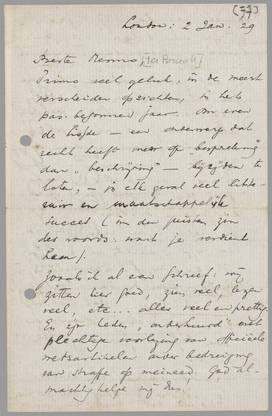 (77)
London: 2 Jan. 29
Beste Menno [ter Braak]
Prima veel geluk, in de meest
verscheiden opzichten, in het
pas begonnen jaar. Om even
de liefde — een onderwerp dat
recht heeft meer op "bespreking"
dan "beschrijving" — bezijden te
laten, — in elk geval veel litte-
rair en maatschappelijk
succes (in den juisten zin
des woords: want je verdient
hem).
Zooals ik al eens schreef: wij
zitten hier goed, zien veel, lezen
veel, etc... alles veel en prettig.
En zijn heden
plechtige voorlezing van officieele
wetsartikelen over bedreiging
van straffe op meineed, God al-
machtig helpe mij